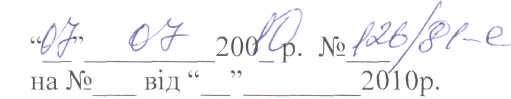 “07” 07 2010 р. № 126/81-е
на №___ від “__”________2010р.